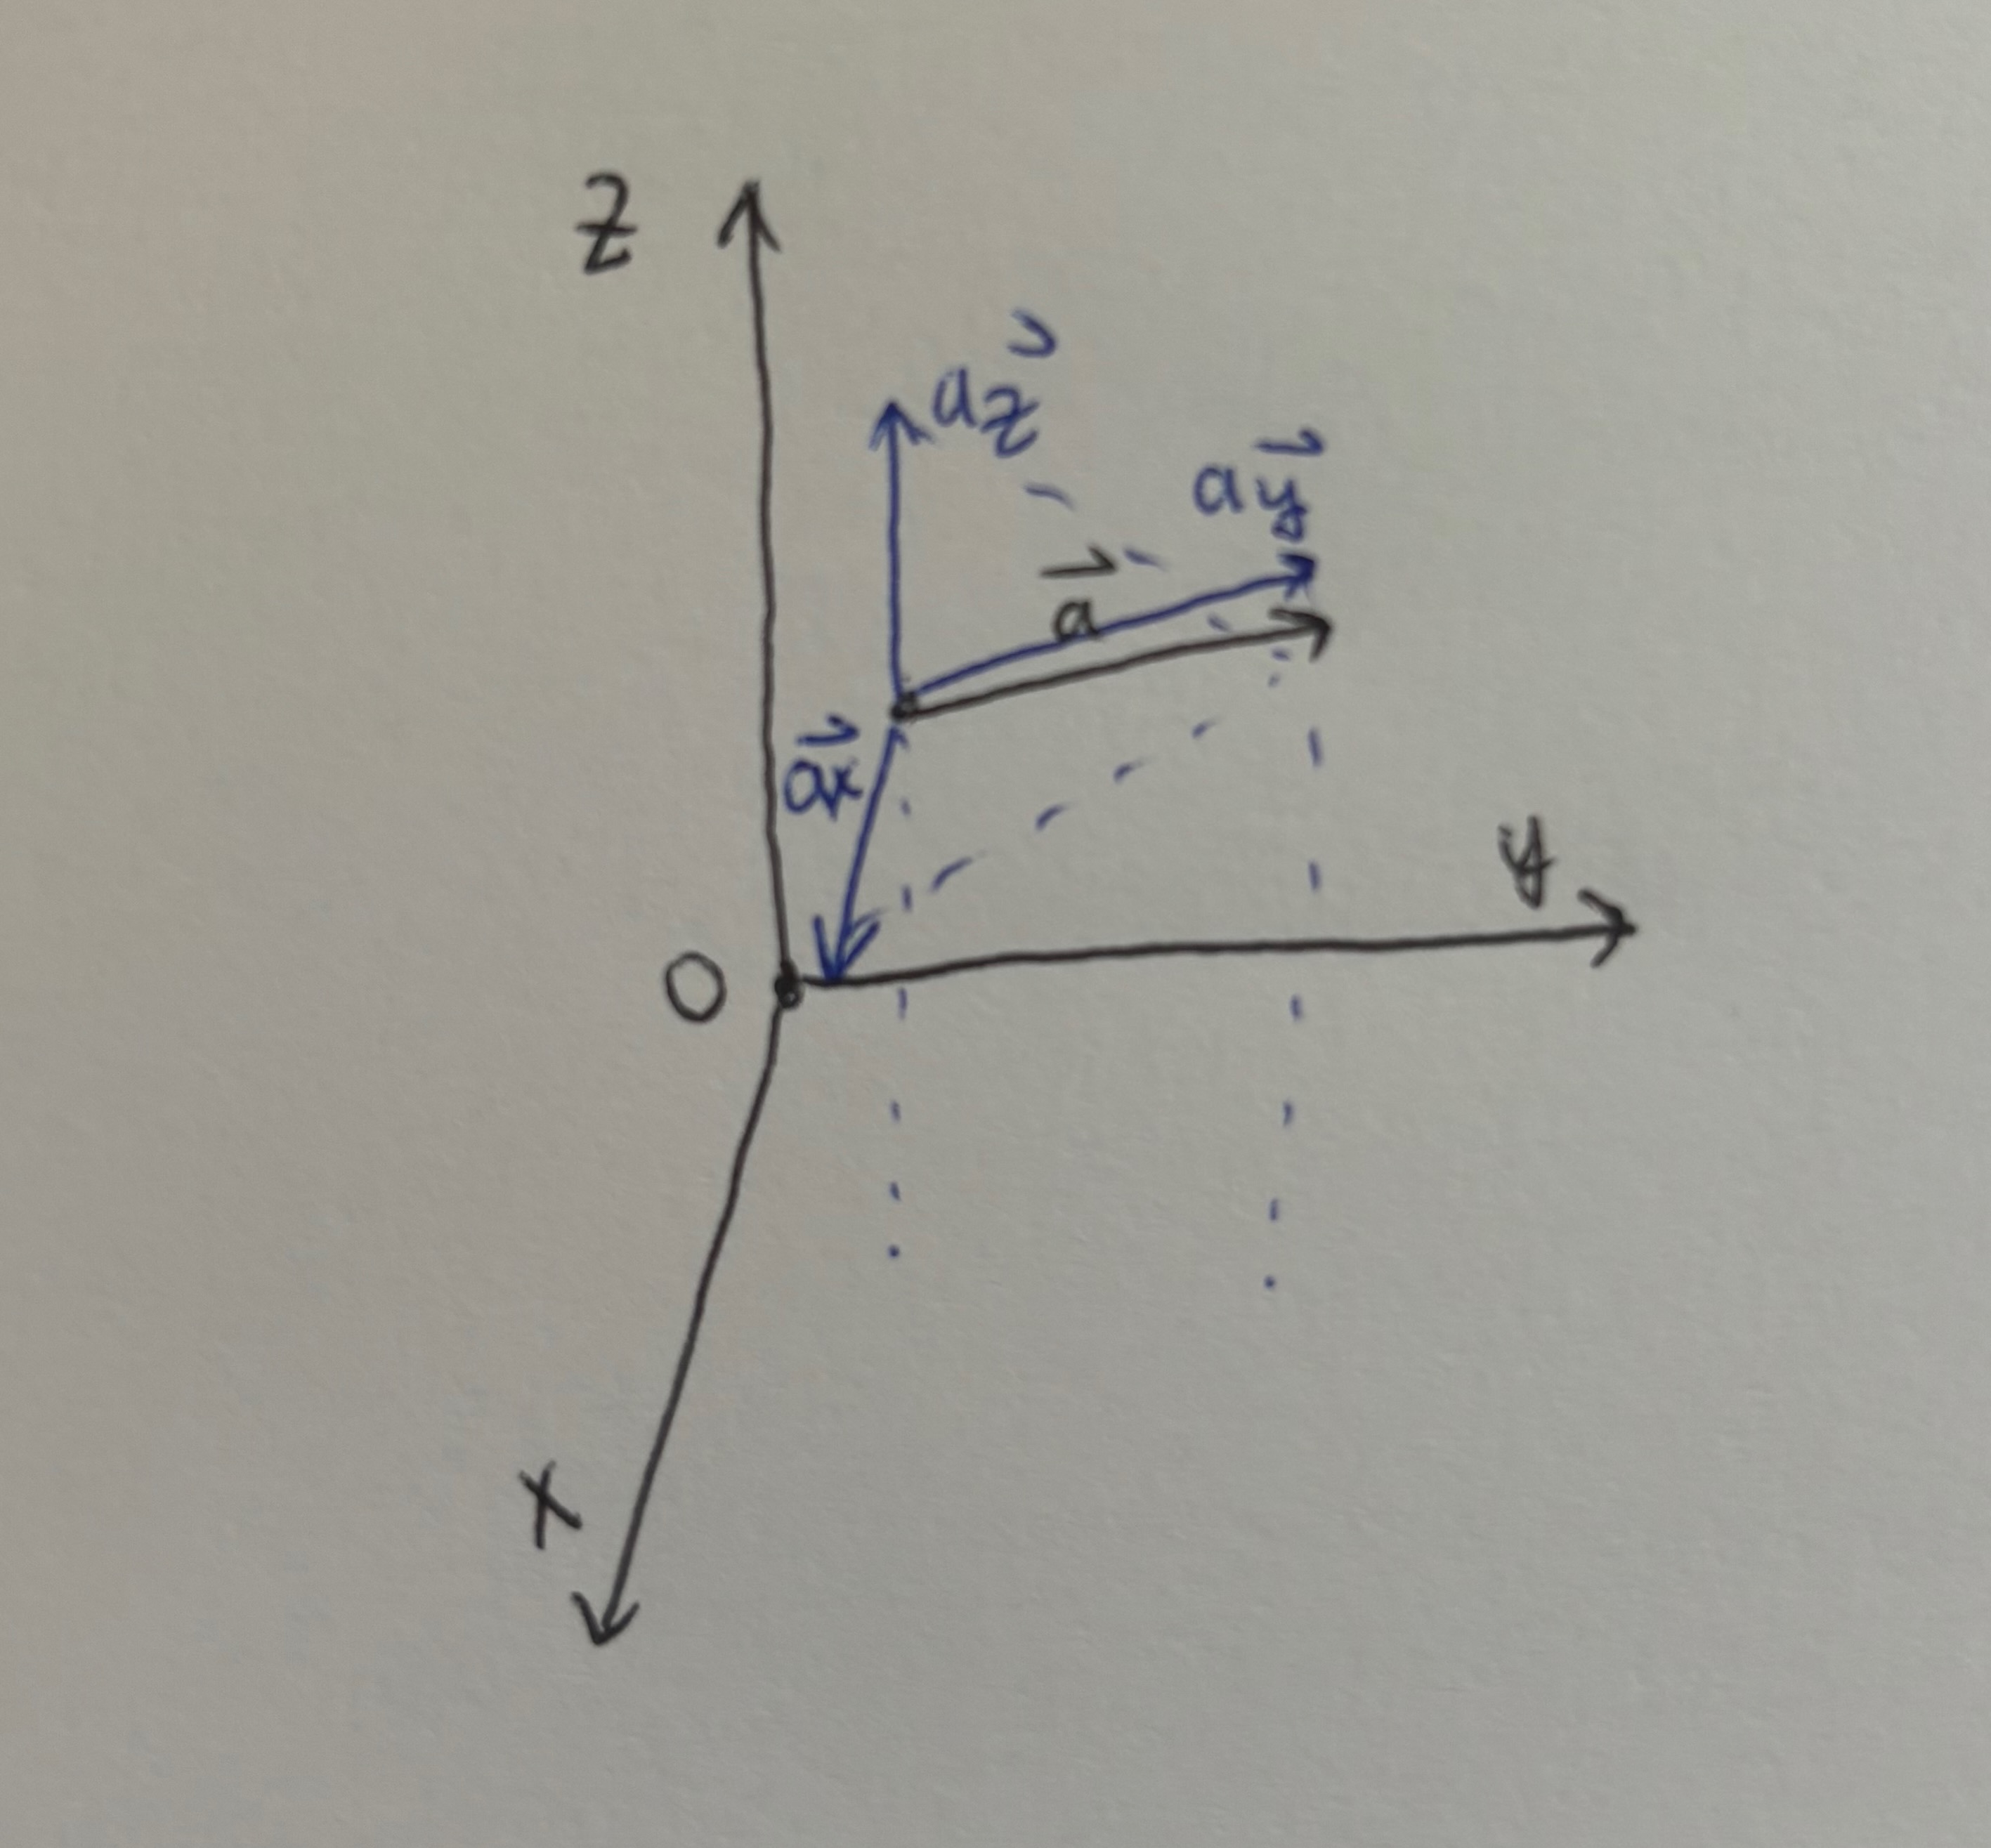 z
az
ay
a
ax
y
O
x